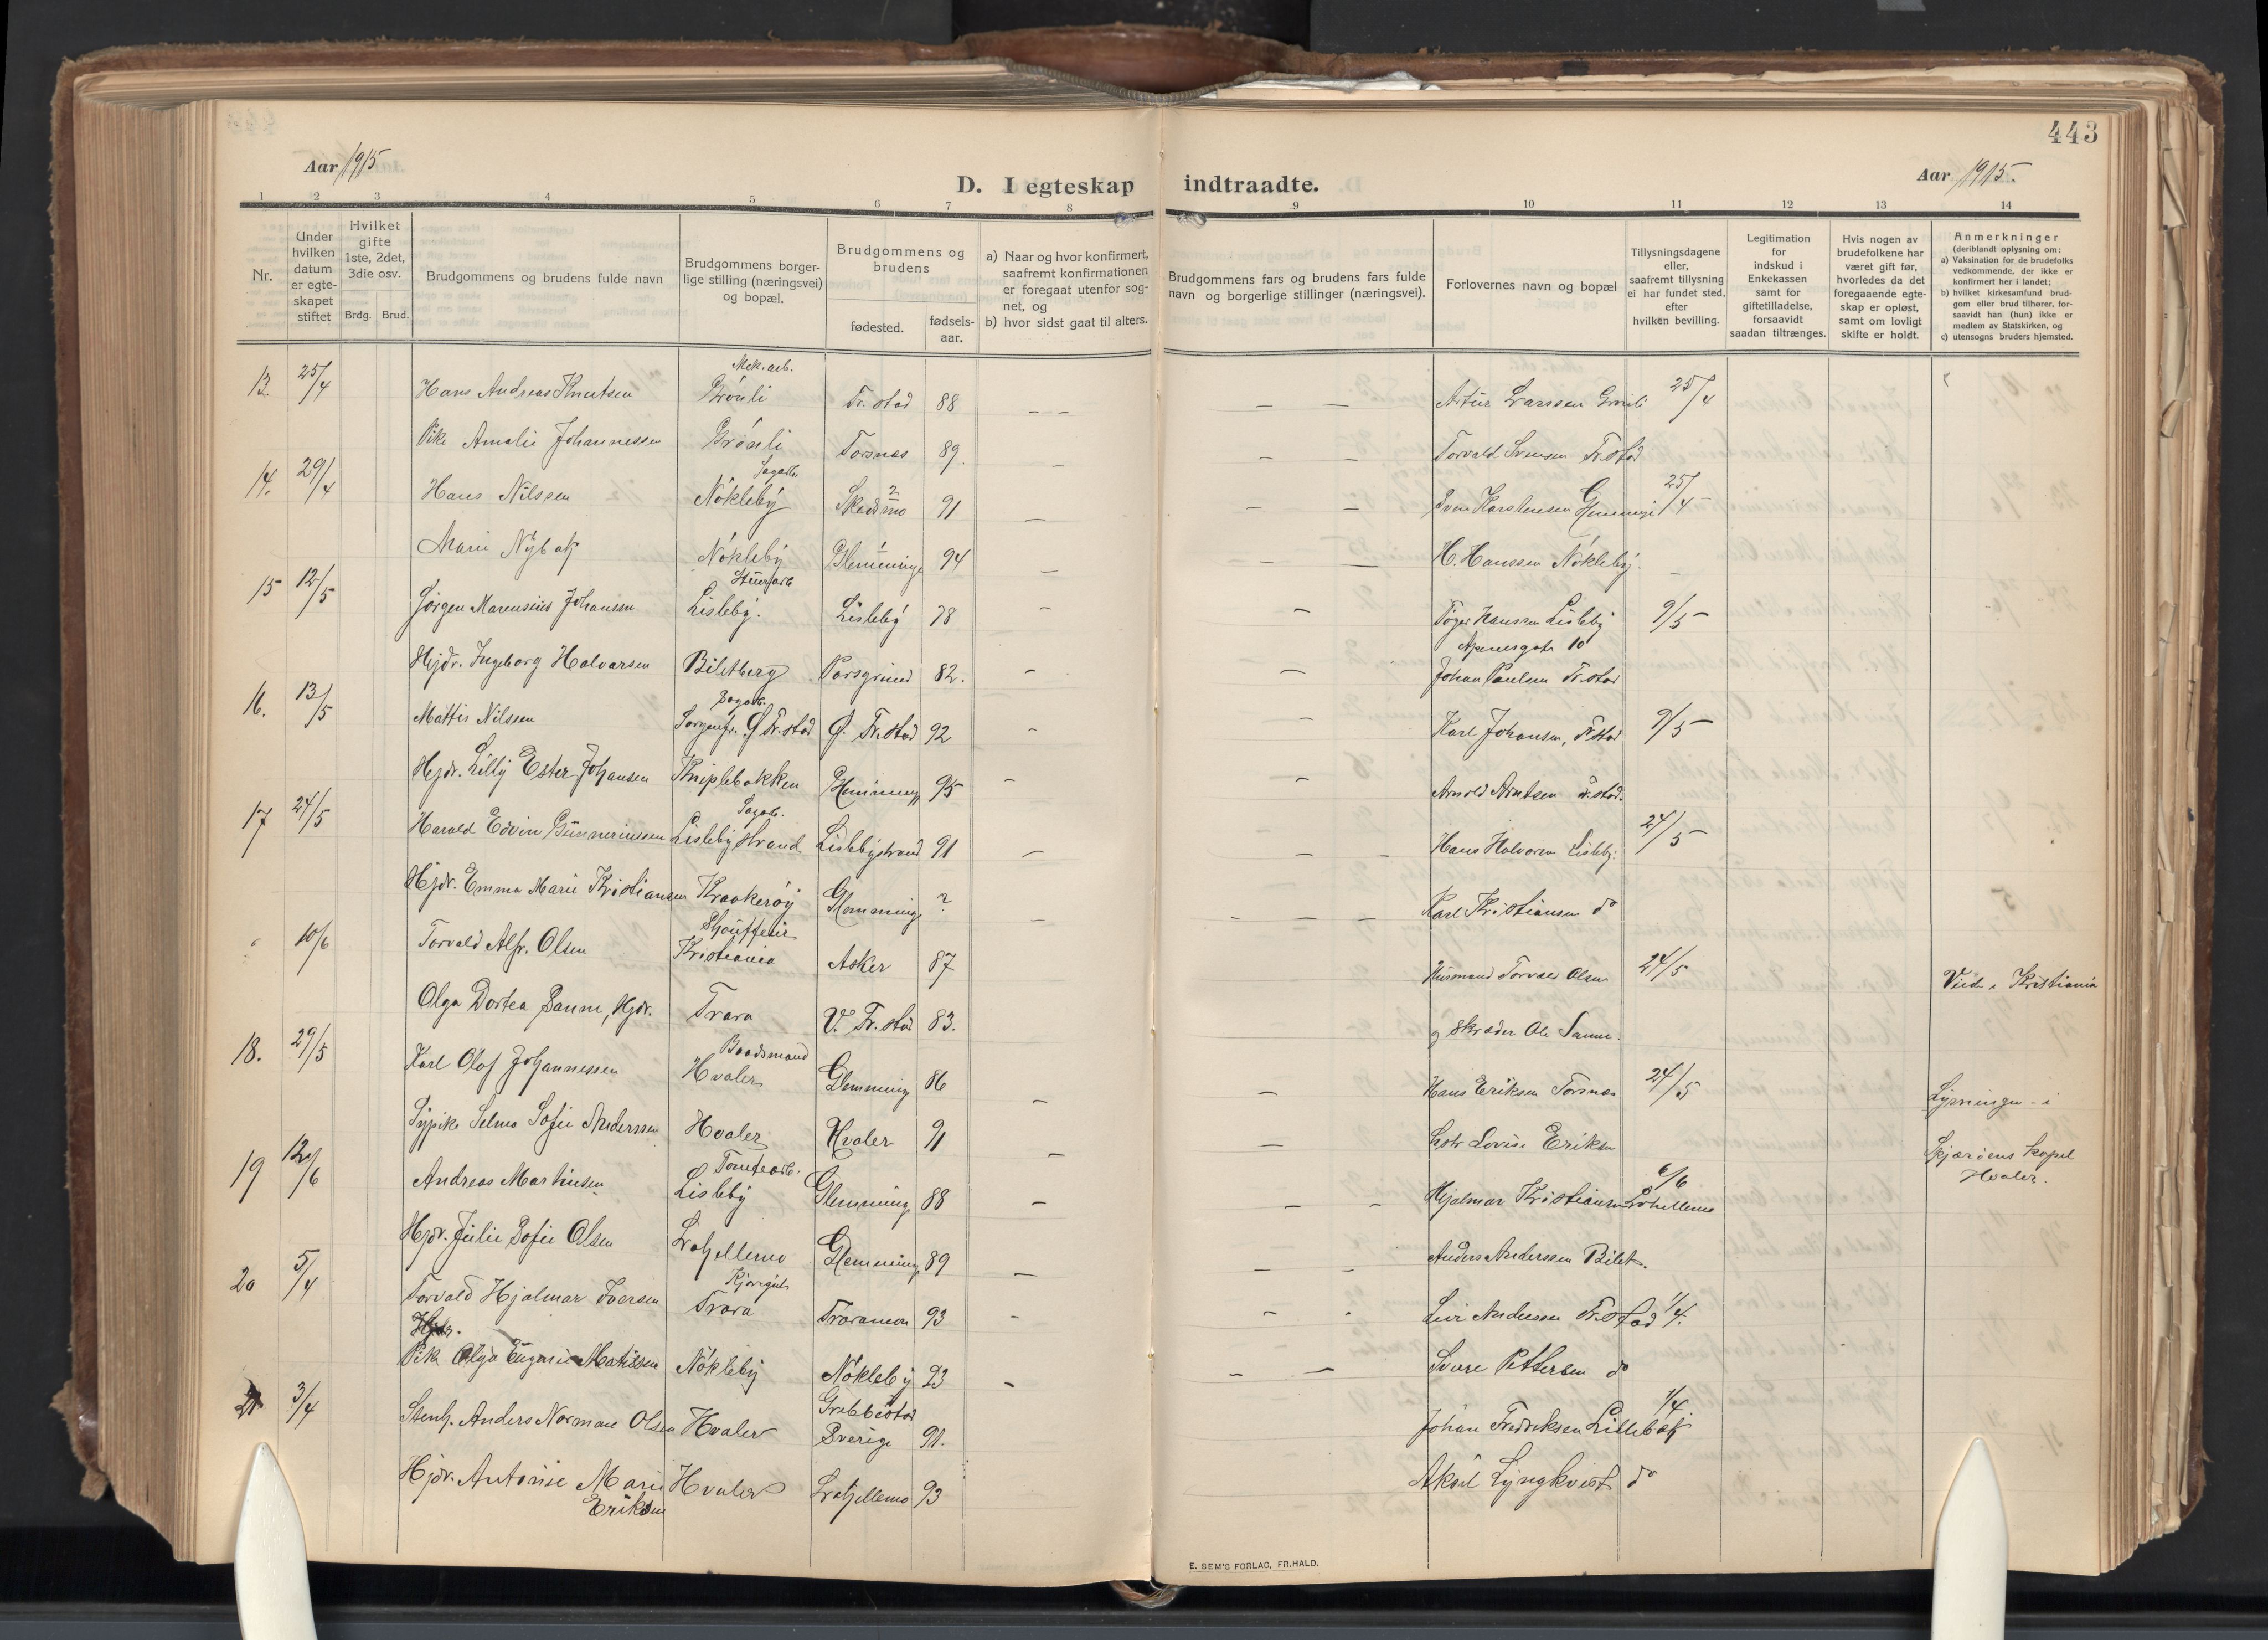 443
Aar 1915
Aar 1915.
D. I egteskap indtraadte.
1 2 3 4 5 6 7 8 9 10 11 12 13 14
Nr.
Under hvilken datum er egteskapet stiftet
Hvilket gifte 1ste, 2det, 3die osv.
Brdg. Brud.
Brudgommens og brudens fulde navn
Brudgommens borgerlige stilling (næringsvei) og bopæl.
Brudgommens og brudens
fødested.
fødselsaar.
a) Naar og hvor konfirmert, saafremt konfirmationen er foregaat utenfor sognet, og
b) hvor sidst gaat til alters.
Brudgommens fars og brudens fars fulde navn og borgerlige stillinger (næringsvei).
Forlovernes navn og bopæl
Tillysningsdagene eller, saafremt tillysning ei har fundet sted, efter hvilken bevilling.
Legitimation for indskud i Enkekassen samt for giftetilladelse, forsaavidt saadan tiltrænges.
Hvis nogen av brudefolkene har været gift før, hvorledes da det foregaaende egteskap er opløst, samt om lovligt skifte er holdt.
Anmerkninger
(deriblandt oplysning om:
a) Vaksination for de brudefolks vedkommende, der ikke er konfirmert her i landet;
b) hvilket kirkesamfund brudgom eller brud tilhører, forsaavidt han (hun) ikke er medlem av Statskirken, og
c) utensogns bruders hjemsted.
Mek. arb.
13. 25/4 Hans Andreas Knutsen Grönli Fr. stad 88 – – – – Artur Larssen Grönli 25/4
Pike Amalie Johannessen Grönli Torsnæs 89. – – – Torvald Svensen Fr.stad
Sagarb.
14. 29/4 Hans Nilssen Nökleby Skedsmo ? 91 – – – Sven Karstensen Glemminge 25/4
Marie Nybak Nökleby Glemminge 94 – – – H. Hanssen Nökleby.
15 12/5 Jörgen Marensius Johansen Lisleby. Lisleby 78 – – Hanssen Lisleby 9/5
Hjdr. Ingeborg Halvorsen Biletberg Porsgrund 82. – – Johan Paulsen Fr.stad
Sagarb.
16. 13/5 Mattis Nilssen Sorgenfr. Ø Fr.stad Ø. Fr.stad 92 – – Karl Johansen, Fr.stad 9/5
Hjdr. Lilly Ester Johansen Kniplebakken Glemminge 95 – – Arnold Arntsen Fr.stad.
Sagarb.
17 24/5 Harald Edvin Gunneriussen Lisleby strand Lislebystrand 91 – – – Hans Halvorsen Lisleby. 24/5
Hjdr. Emma Marie Kristiansen Kraakeröy Glemminge ? – – – – Karl Kristiansen do
Shouffeur
" 10/6 Torvald Alfr. Olsen Kristiania Asker 87 Husmand Torvald Olsen 24/5 Viet i Kristiania
Olga Dortea Sanne, Hjdr. Trara V. Fr.stad 83. og Skrædder Ole Sanne.
Baadsmand
18. 29/5 Karl Olaf Johannessen Hvaler Glemminge 86 – – Hans Eriksen Torsnæs 24/5 Lysningen i
Sypike Selma Sofie Anderssen Hvaler Hvaler 91 – – Lovise Eriksen Skjæröens Kapel
Hvaler.
Tomtearb.
19 12/6 Andreas Martinsen Lisleby Glemminge 88 – – – Hjalmar Kristiansen Lahellemo 6/6
Hjdr. Julie Sofie Olsen Lahellemo Glemminge 89 – – – Anders Anderssen Bilet.
20 5/4 Torvald Hjalmar Iversen Trara Traramon 93 – – – Andersen Fr.stad 1/4.
Hjdr.
Pike Olga Eugenie Matissen Nökleby Nökleby 93 – – – Sverre Pettersen do
Grebbestad
21 3/4 Stenh. Anders Norman Olsen Hvaler Sverige 91. Johan Fredriksen Lillebak 1/4
Hjdr. Antonie Marie Hvaler Lahellemo 93 Aksel Lyngkvist do
Eriksen
E. SEM'S FORLAG, FR.HALD.